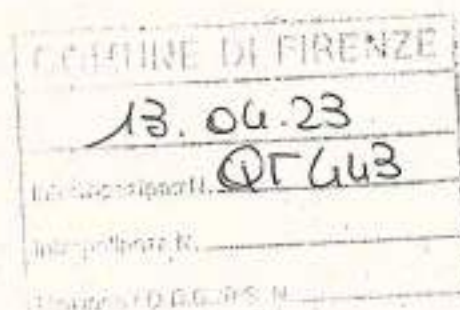 COMUNE DI FIRENZE
13.04.23
Interrogazione N. QT 443
Interpellanza N.